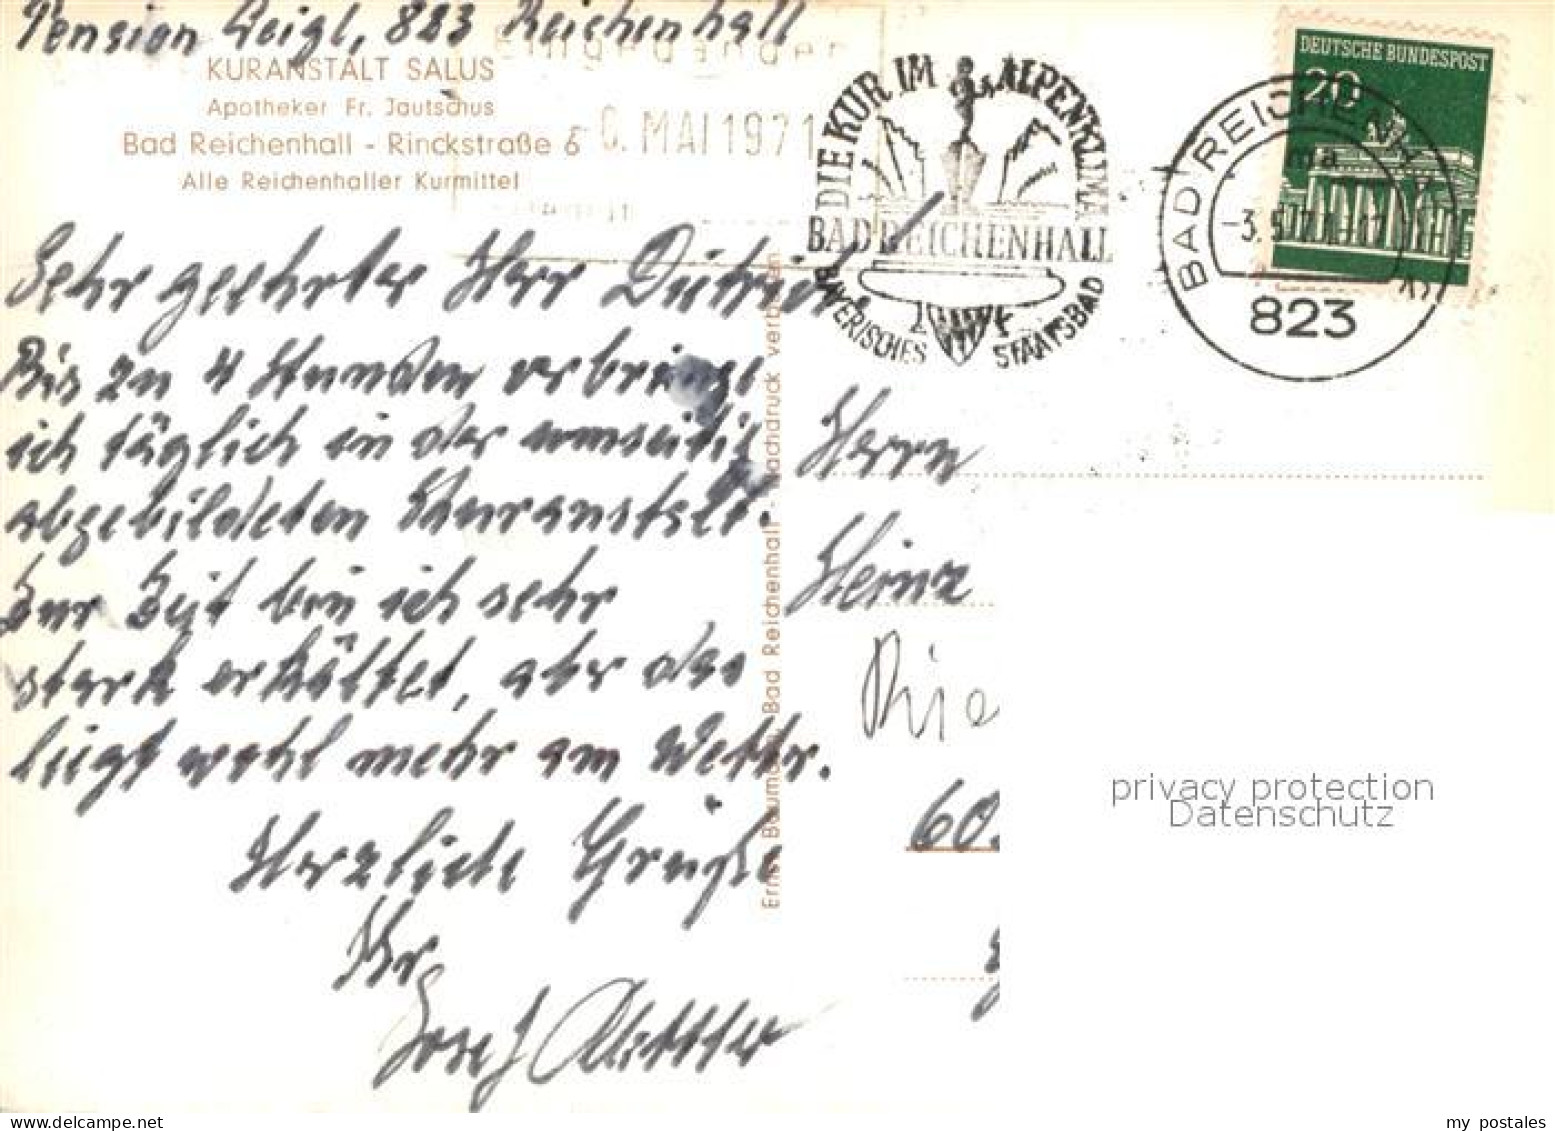 Pension Geigl, 823 Reichenhall
KURANSTALT SALUS
Apotheker Fr. Jautschus
Bad Reichenhall - Rinckstraße 6
Alle Reichenhaller Kurmittel
Eingegangen
6. MAI 1971
DIE KUR IM ALPENKLIMA
BAD REICHENHALL
BAYERISCHES STAATSBAD
DEUTSCHE BUNDESPOST
20
BAD REICHENHALL
ma
-3.5.71-07
823
Sehr geehrter Herr Dietrich!
Bis zu 4 Stunden verbringe
ich täglich in der umseitig
abgebildeten Kuranstalt.
Zur Zeit bin ich sehr
stark erkältet, aber das
liegt wohl mehr am Wetter.
Herzliche Grüße
Ihr
Josef
Ernst Baumann, Bad Reichenhall - Nachdruck verboten
Herrn
Heinz
60
privacy protection
Datenschutz
my postales